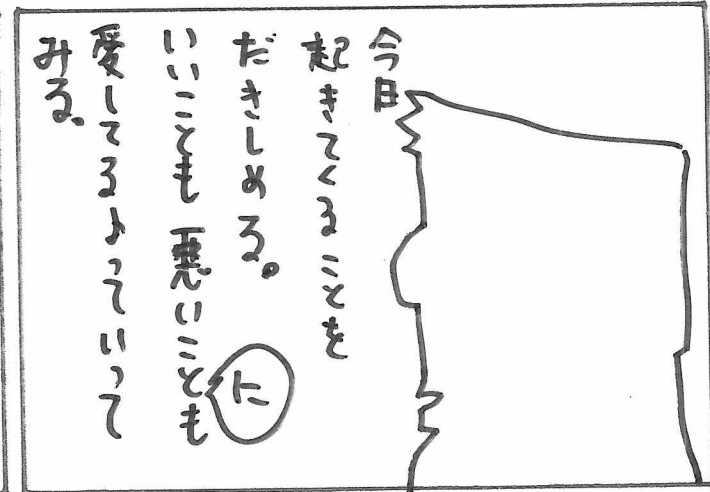 今日
起きてくることを
だきしめる。
いいことも悪いことにも
愛してるよっていって
みる。